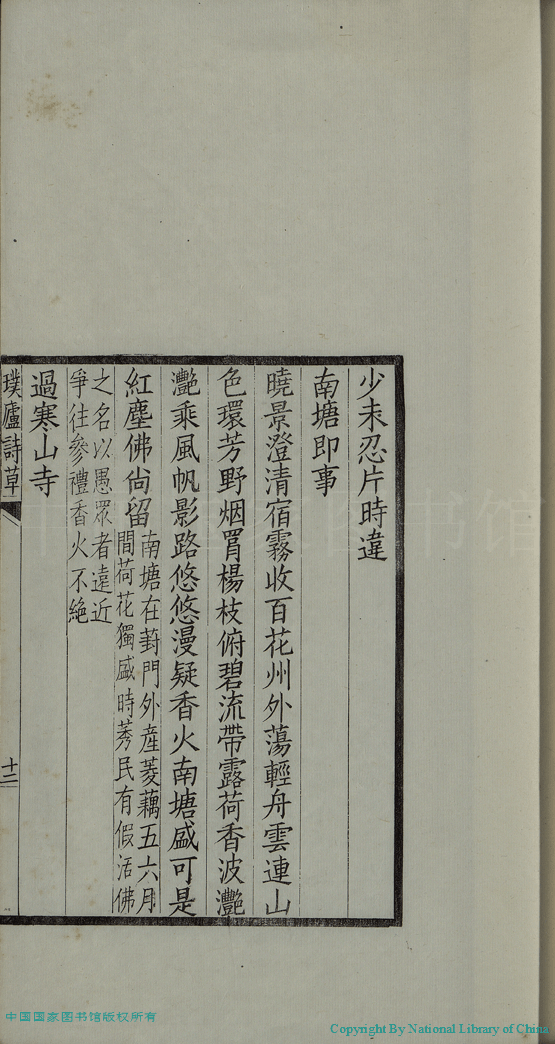 少未忍片時違
南塘即事
曉景澄清宿霧收百花州外蕩輕舟雲連山
色環芳野烟罥楊枝俯碧流帶露荷香波灧
灧乘風帆影路悠悠漫疑香火南塘盛可是
紅塵佛尙留
南塘在葑門外産菱藕五六月
間荷花獨盛時莠民有假活佛
之名以愚眾者遠近
爭往參禮香火不絶
過寒山寺
璞廬詩草
十二
中国国家图书馆版权所有
Copyright By National Library of China